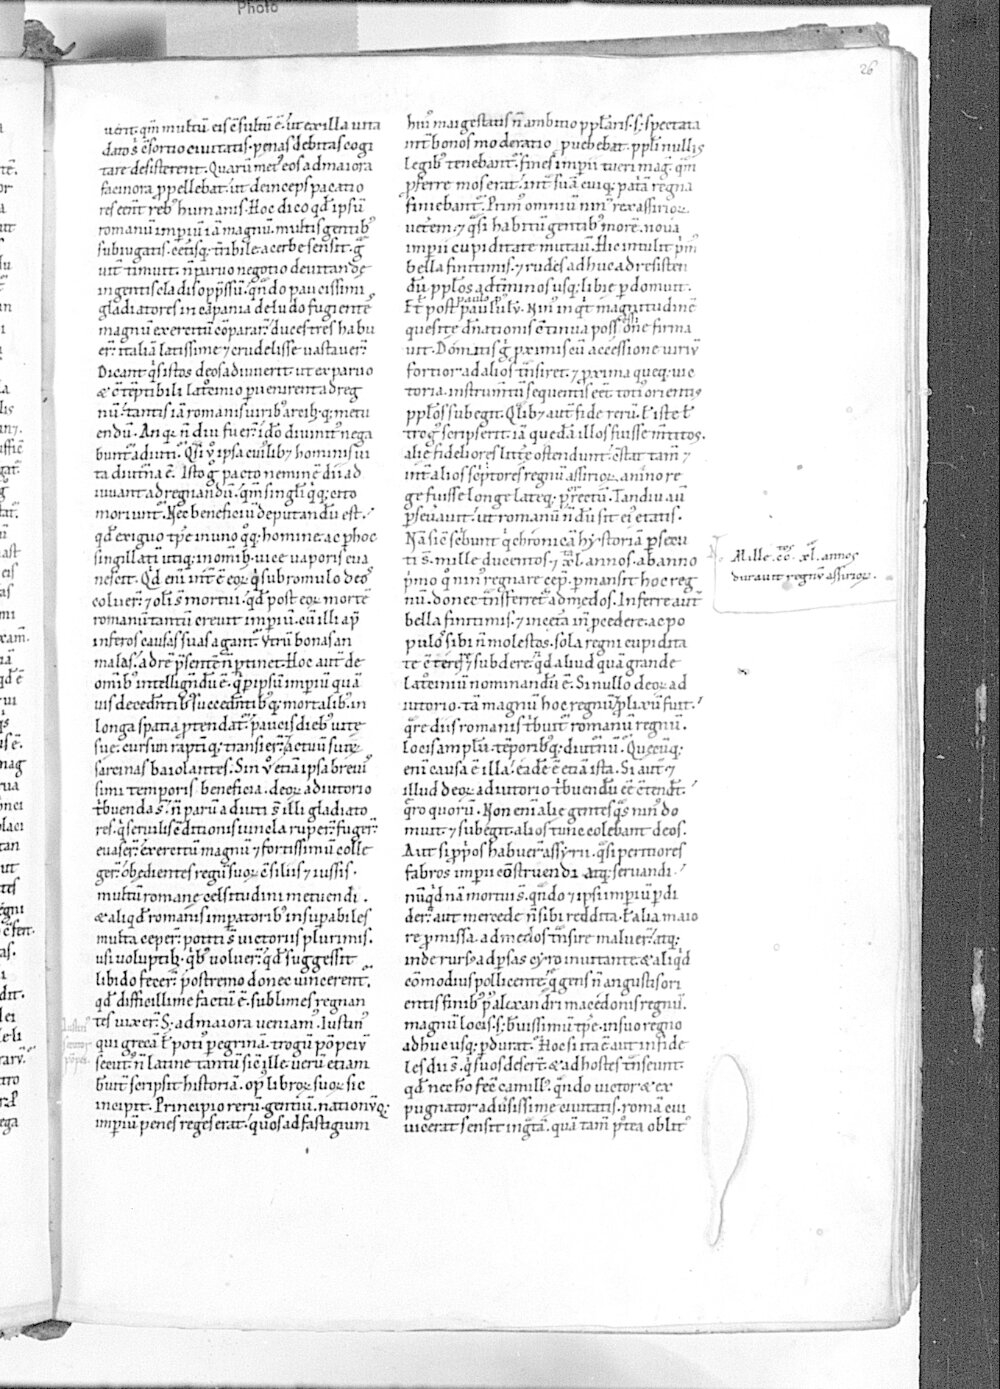 Photo
26
uerit. qm̄ multū eis c̄sultū ē. ut ex illa uita
datos c̄sortio ciuitatis. penas debitas cogi
tare desisterent. Quarū met᷒ eos ad maiora
facinora ꝓpellebat. ut deinceps pacatio
res eēnt reb᷒ humanis. Hoc dico qđ ipsū
romanū imꝑiū iā magnū. multis gentib᷒
subiugatis. cet̄isq; t̄ribile. acerbe sensit. gͣ
uit̄ timuit. ñ paruo negotio deuitandę
ingentis cladis opp̄ssū. qn̄do paucissimi
gladiatores in cāpania de ludo fugientes
magnū exercitū cōparar̄. duces tres habu
er̄. italiā latissime ⁊ crudelisse uastauer̄.
Dicant qͥs istos deos adiuuerit. ut ex paruo
& c̄tēptibili latrocinio ꝑuenirent ad reg
nū. tantis iā romanis uirib᷒ arcib;q; metu
endū. An qꝛ ñ diu fuer̄. idō diuinit᷒ nega
bunt̄ adiuti. Qͣsi ū ipsa cuiliby hominis ui
ta diutina ē. Isto gͦ pacto neminē dii ad
iuuant ad regnandū. qm̄ singl̄i qͥq; cito
moriunt̄. Nec beneficiū deputandū est.
qđ exiguo tp̄e in uno qͦq; homine. ac ꝑ hoc
singillatī utiq; in omīb; uice uaporis eua
nescit. Qͥd eni int̄ē eoꝝ qͥ sub romulo deos
coluer̄. ⁊ oli sᷓ mortui. qđ post eoꝝ mortē
romanū tantū creuit imꝑiū. cū illi apđ
inferos causas suas agant. Vtrū bonas an
malas. ad rē p̄sentē ñ ꝑtinet. Hoc aut̄ de
omīb᷒ intelligndū ē. qͥ ꝑ ipsū imꝑiū quā
uis decedentib᷒ succedentib᷒q; mortalib᷒. in
longa spatia ꝓtendat̄. paucis dieb᷒ uite
sue. cursim raptiq; transier̄. actuū suoꝝ
sarcinas baiolantes. Sin ū etiā ipsa breui᷒
simi temporis beneficia. deoꝝ adiutorio
t̄buenda sᷓ. ñ parū adiuti sᷓ illi gladiato
res. qͥ seruilis c̄ditionis uincla ruper̄. fuger̄.
euaser̄. exercitū magnū ⁊ fortissimū colle
ger̄. obedientes regū suoꝝ c̄siliis ⁊ iussis.
multū romane celsitudini metuendi.
& aliqͥđ romanis imꝑatorib᷒ insuꝑabiles
multa ceper̄. potiti sᷓ uictoriis plurimis.
usi uoluptib;. qͥb᷒ uoluer̄. qđ suggessit
libido fecer̄. postremo donec uincerent᷒.
qđ difficillime factū ē. sublimes regnan
tes uixer̄. S; ad maiora ueniam. Iustin᷒
qui grecā ł poti᷒ ꝑegrinā. trogū pōpeiū
secut᷒. ñ latine tantū sic ille. uerū etiam
breuit̄ scripsit historiā. opꝰ libroꝝ suoꝝ sic
incipit. Principio rerū. gentiū. nationūq;
imꝑiū penes reges erat. quos ad fastigium
hui᷒ maigestatis ñ ambitio popl̄aris. s; spectata
int̄ bonos moderatio ꝓuehebat. ppl̄i nullis
legib᷒ tenebant̄. fines imꝑii tueri mag̃. qm̄
ꝓferre mos erat. int̄ suā cuiq; patiā regna
finiebant̄. Prim᷒ omniū nin᷒ rex assirioꝝ.
ueterē. ⁊ qͣsi habitū gentib᷒ morē. noua
imꝑii cupiditate mutauit. Hic intulit p̄m
bella finitimis. ⁊ rudes adhuc ad resisten
dū. ppl̄os ad t̄minos usq; libie ꝑdomuit.
Et post paululū. Nin᷒ inqͥt magnitudinē
quesite dn̄ationis c̄tinua poss̄ione firma
uit. Domitis gͦ ꝓximis cū accessione uiriū
fortior ad alios tn̄siret. ⁊ ꝓxima queq; uic
toria. instrumtū sequentis eēt. toti᷒ orientis
ppl̄os subegit. Qͣliby aut̄ fide rerū. ł iste ł
trog᷒ scripserit. iā quedā illos fuisse mentitos.
alie fideliores littē ostendunt. c̄stat tam̄ ⁊
int̄ alios sc̄ptores regnū assirioꝝ. a nino re
ge fuisse longe lateq; porrectū. Tandiu aut̄
ꝑseuauit. ut romanū ñdū sit ei᷒ etatis.
Nā sic sc̄bunt qͥ chronicā hystoriā ꝑsecu
ti sᷓ. mille ducentos. ⁊ xl. annos. ab anno
p̄mo qͦ nin᷒ regnare cep̄. ꝑmansit hoc reg
nū. donec tn̄sferret᷒ ad medos. Inferre aut̄
bella finitimis. ⁊ in cetā inꝓcedere. ac po
pulos sibi ñ molestos. sola regni cupidita
te c̄terere ⁊ subdere. qͥd aliud quā grande
latrociniū nominandū ē. Si nullo deoꝝ ad
iutorio. tā magnū hoc regnū ⁊ ꝓlixū fuit.
qͣre diis romanis t̄buit̄ romanū regnū.
locis amplū. tēporib᷒q; diutnū. Quecūq;
eni causa ē illa. eadē ē etiā ista. Si aut̄ ⁊
illud deoꝝ adiutorio t̄buendū eē c̄tendt̄.
qͣro quorū. Non eni alie gentes qͣs nin᷒ do
muit. ⁊ subegit. alios tunc colebant deos.
Aut si ꝓpͥos habuer̄ assyrii. qͣsi peritiores
fabros imꝑii construendi atq; seruandi.
nūqͥdnā mortui sᷓ. qn̄do ⁊ ipsi imꝑiū ꝑdi
der̄. aut mercede ñ sibi reddita. ł alia maio
re ꝓmissa. ad medos tn̄sire maluer̄. atq;
inde rursᷤ ad ꝑsas cyro inuitante. & aliqͥd
cōmodius pollicente. qͣ gens ñ angustis ori
entis finib᷒ pᷤ alexandri macedonis regnū.
magnū locis. s; breuissimū tp̄e. in suo regno
adhuc usq; ꝑdurat. Hoc si ita ē. aut infide
les dii sᷓ. qͥ suos deserētes. & ad hostes tn̄seunt.
qđ nec homo fecit camill᷒. qn̄do uictor & ex
pugnator aduersissime ciuitatis. romā cui
uicerat sensit ingratā. quā tam̄ postea oblit᷒
Mille. cc. xl. annos
durauit regnū assirioꝝ.